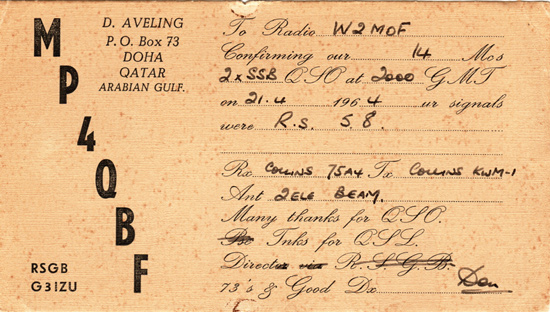 MP4QBF
D. AVELING
P.O. Box 73
DOHA
QATAR
ARABIAN GULF.
RSGB
G3IZU
To Radio W2MOF
Confirming our 14 Mcs
2xSSB QSO at 2000 G.M.T
on 21.4 1964 ur signals
were R.S. 58.
Rx COLLINS 75A4 Tx COLLINS KWM-1
Ant 2ELE BEAM.
Many thanks for QSO.
Tnks for QSL.
Direct via R.S.G.B.
73's & Good Dx Don